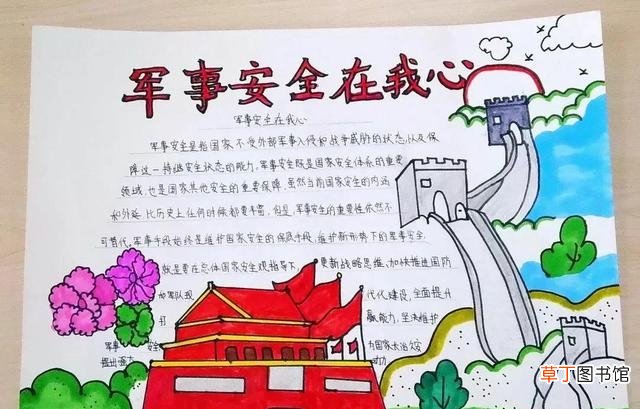 军事安全在我心
军事安全在我心
军事安全是指国家不受外部军事入侵和战争威胁的状态,以及保
障这一持续安全状态的能力,军事安全既是国家安全体系的重要
领域,也是国家其他安全的重要保障,虽然当前国家安全的内涵
和外延比历史上任何时候都要丰富,但是,军事安全的重要性依然不
可替代,军事手段始终是维护国家安全的保底手段,维护新形势下的军事安全,
就是要在总体国家安全观指导下, 更新战略思维,加快推进国防
和军队现 代化建设,全面提升
打 赢能力,坚决维护
军事 安全 为国家长治久安
提出强大
草丁图书馆